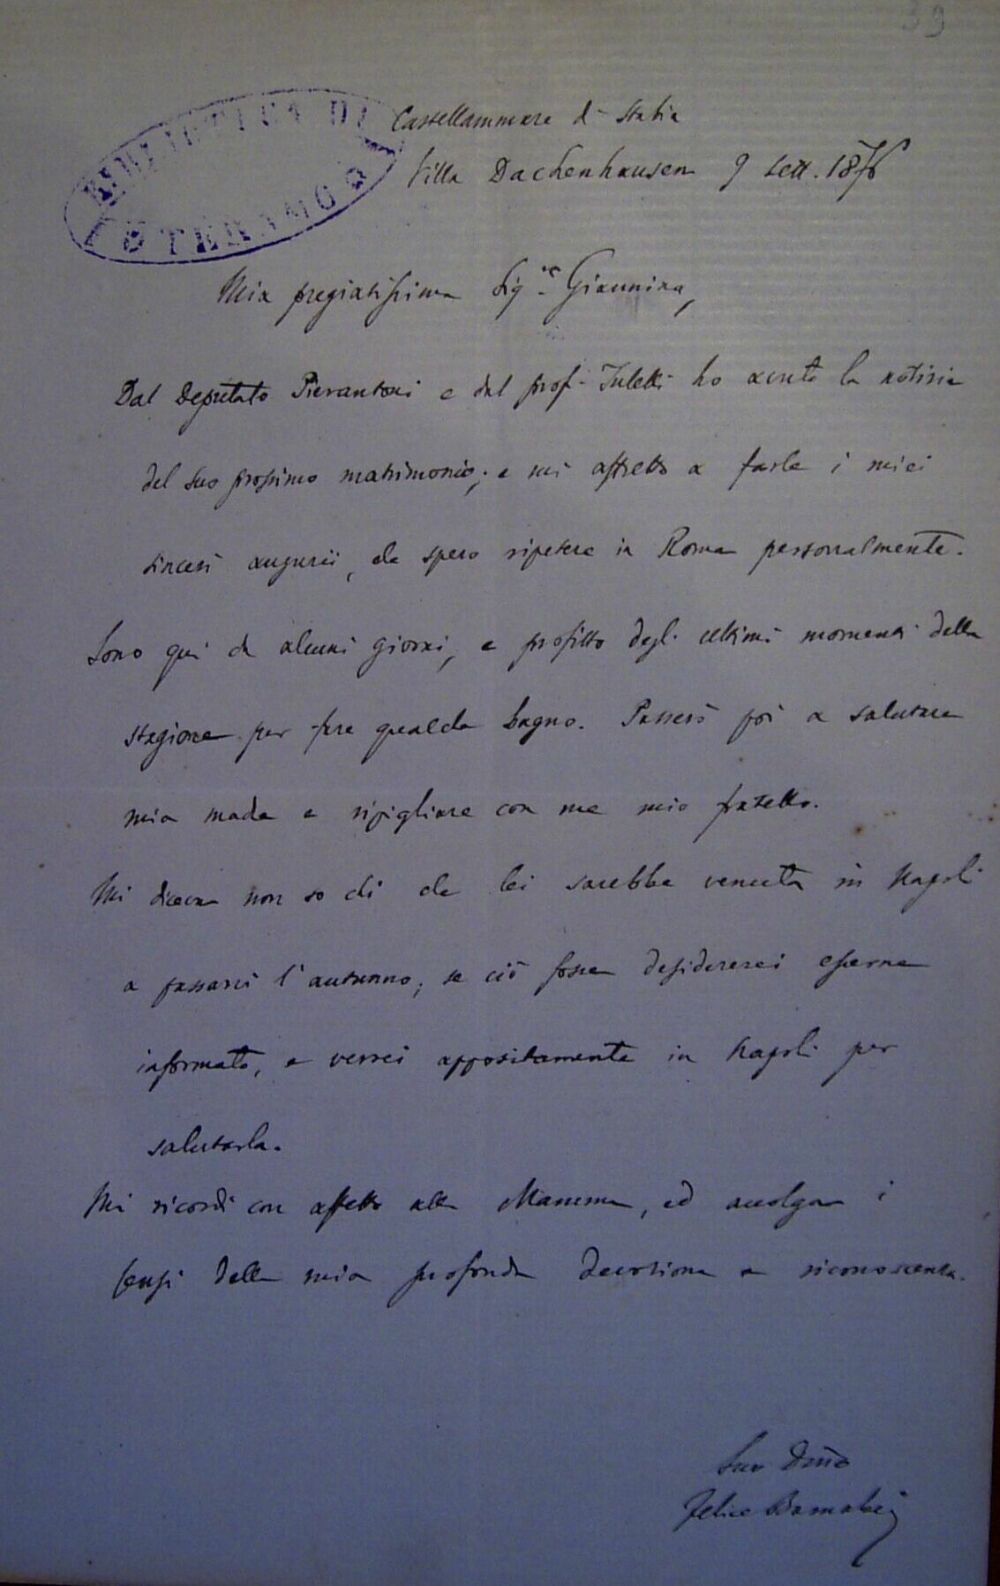 39
BIBLIOTECA DI
TERAMO
Castellammare di Stabia
Villa Dachenhausen 9 sett. 1876
Mia pregiatissima Sig.ra Giannina,
Dal Deputato Pierantoni e dal prof. ho avuto la notizia
del suo prossimo matrimonio; e mi affretto a farle i miei
sinceri augurii, che spero ripetere in Roma personalmente.
Sono qui da alcuni giorni, e profitto degli ultimi momenti della
stagione per fare qualche bagno. Passerò poi a salutare
mia madre e ripigliare con me mio fratello.
Mi diceva non so chi che lei sarebbe venuta in Napoli
a passarvi l'autunno; se ciò fosse desidererei esserne
informato, e verrei appositamente in Napoli per
salutarla.
Mi ricordi con affetto alla Mamma, ed accolga i
sensi della mia profonda devozione e riconoscenza.
Suo Devmo
Felice Barnabei